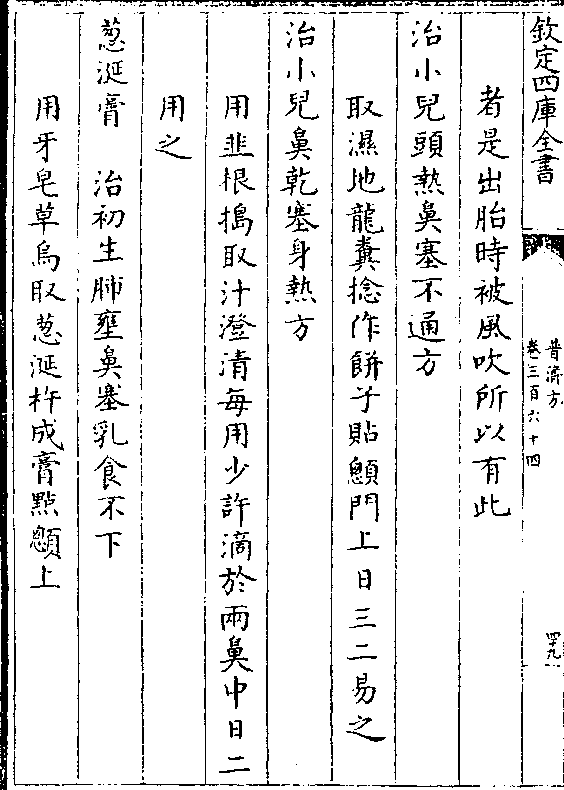 欽定四庫全書
普濟方
卷三百六十四
四十九
者是出胎時被風吹所以有此
治小兒頭熱鼻塞不通方
取濕地龍糞捻作餅子貼顖門上日三二易之
治小兒鼻乾塞身熱方
用韭根搗取汁澄清每用少許滴於兩鼻中日二
用之
葱涎膏　治初生肺壅鼻塞乳食不下
用牙皂草烏取葱涎杵成膏點顖上